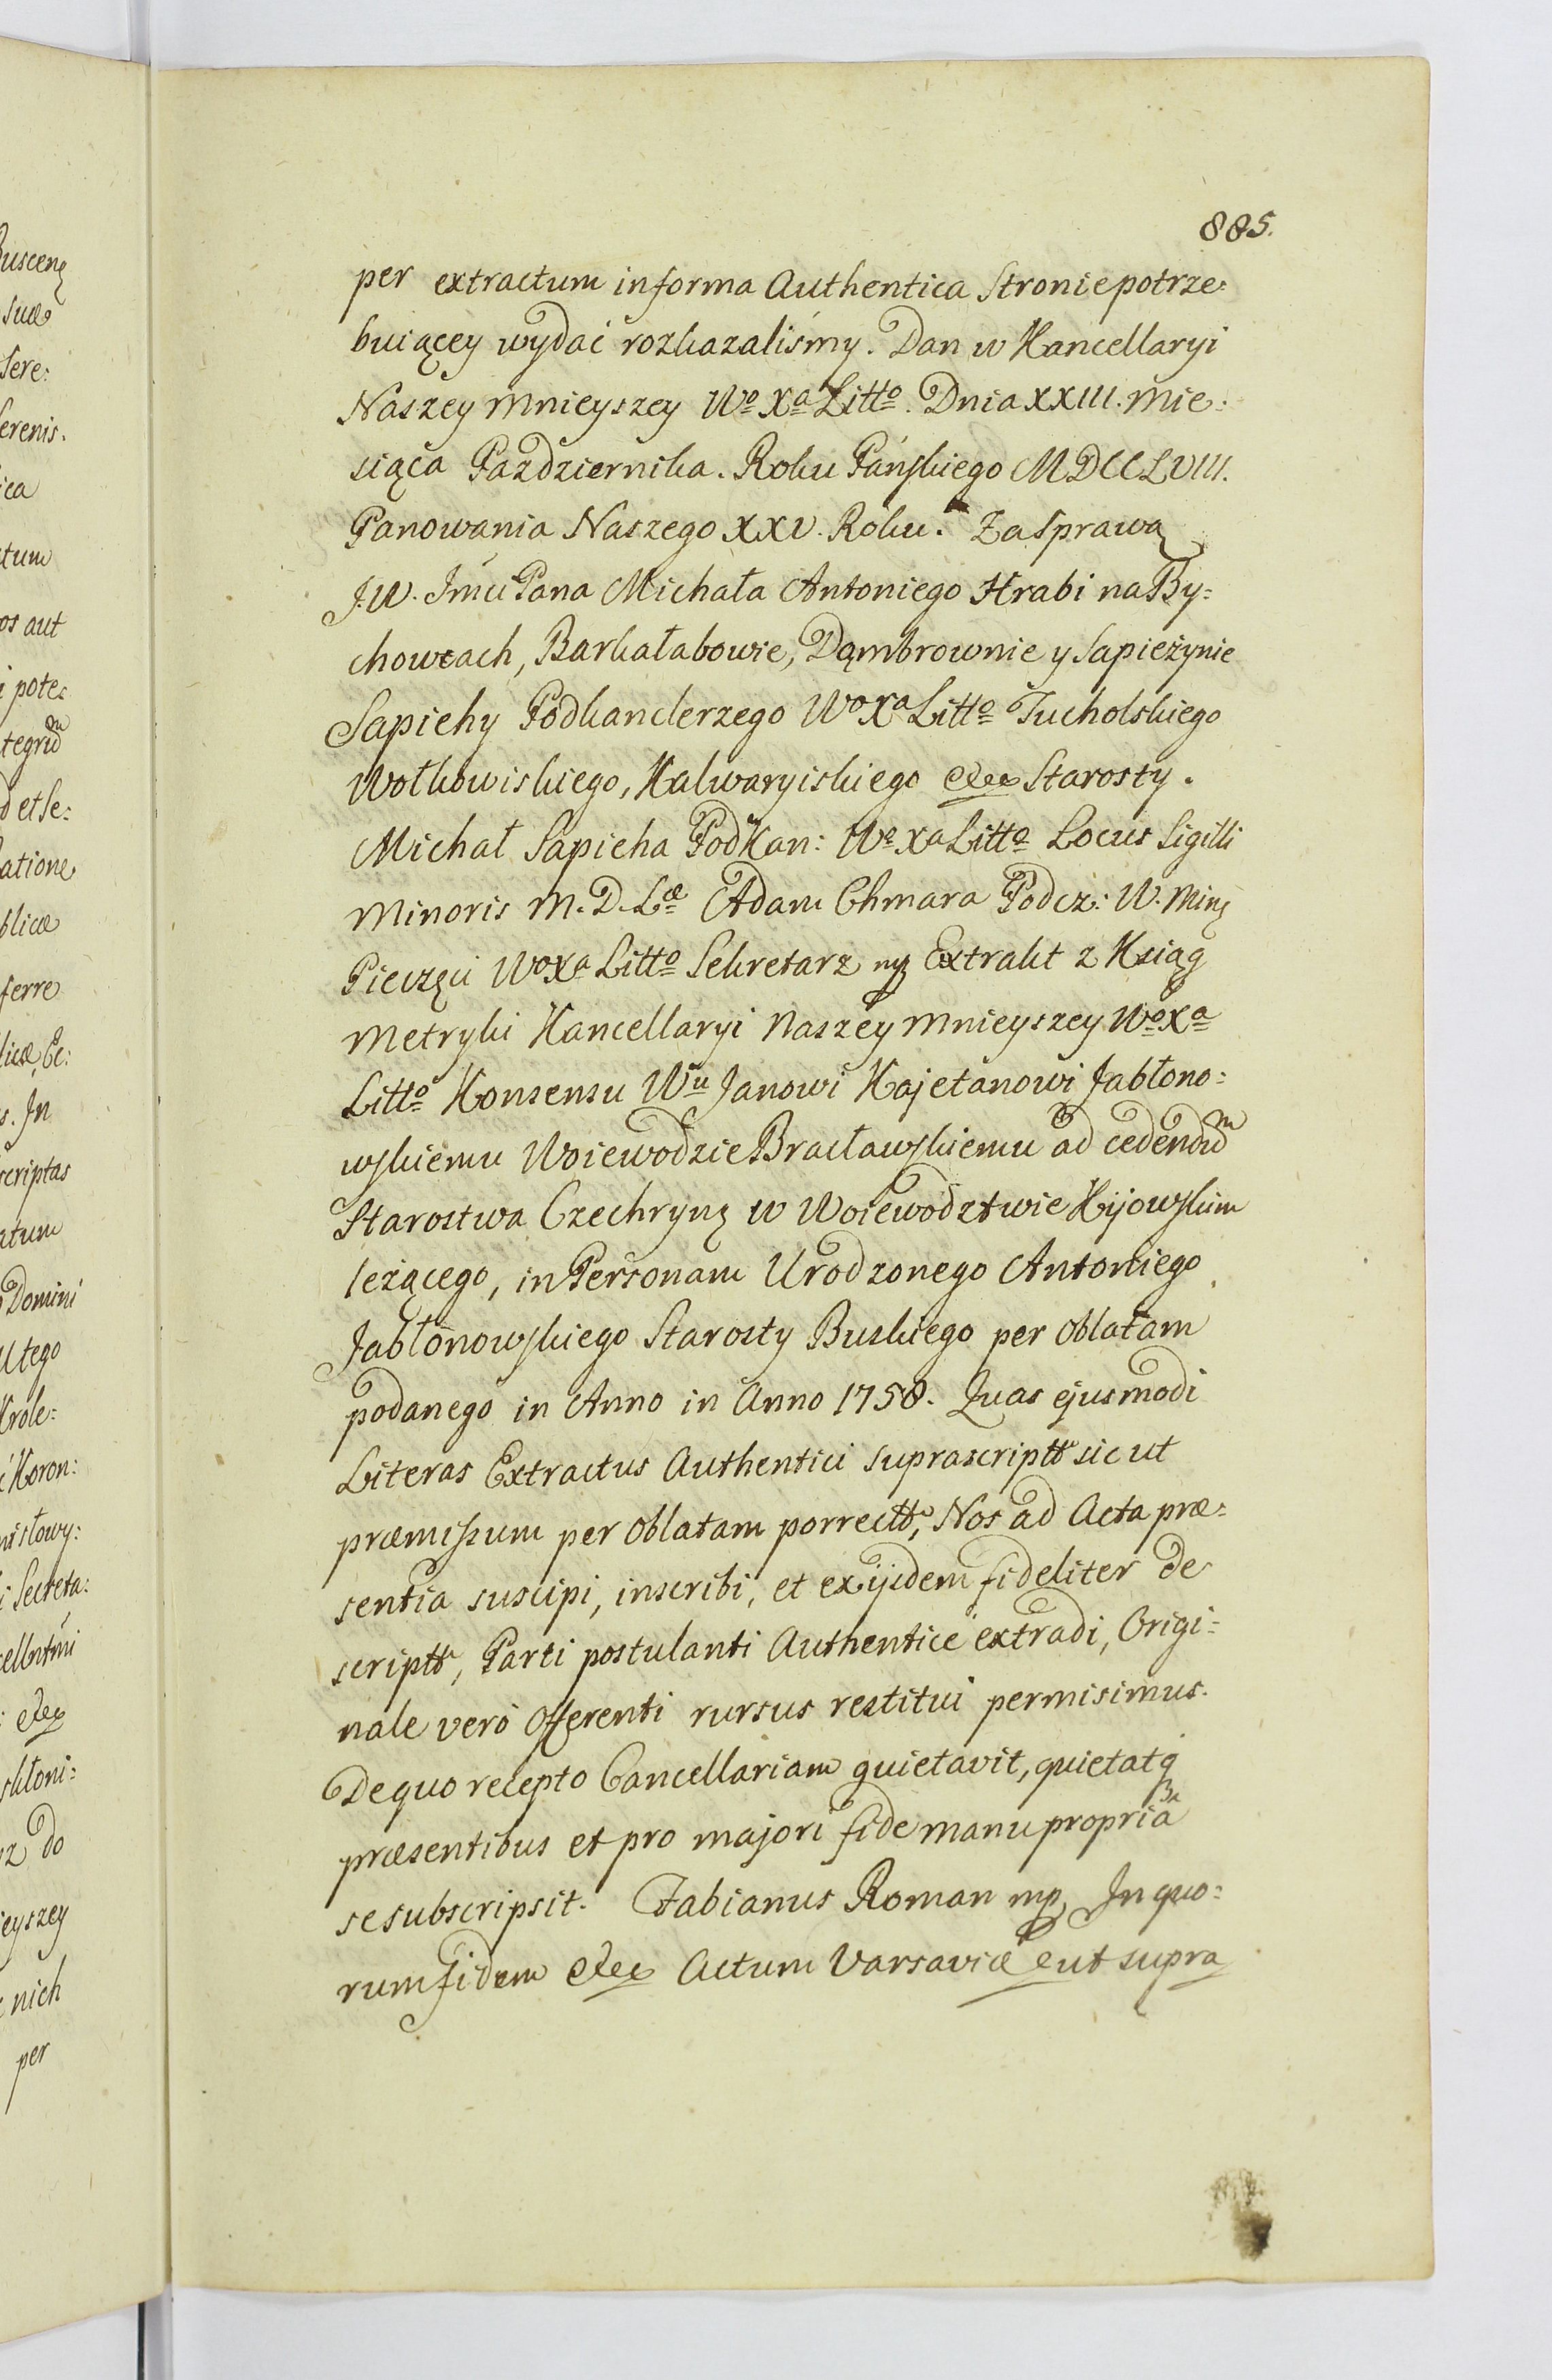 885.
per extractum in forma Authentica Stronie potrze:
buiącey wydać rozkazaliśmy. Dan w Kancellaryi
Naszey Mnieyszey Wo Xa Litto. Dnia XXIII. Mie:
siąca Pazdziernika. Roku Pańskiego MDCCLVIII.
Panowania Naszego XXV. Roku. Za sprawą
J.W. Jmći Pana Michała Antoniego Hrabi na By:
chowcach, Barkałabowie, Dąmbrownie y Sapieżynie
Sapiehy Podkanclerzego Wo Xa Litto Tucholskiego
Wołkowiskiego, Kalwaryiskiego etc Starosty.
Michał Sapieha PodKan: Wo Xa Litto Locus Sigilli
Minoris M.D.Læ Adam Chmara Podcz: W. Minę
Pieczęci Wo Xa Litto Sekretarz mp Extrakt z Ksiąg
Metryki Kancellaryi Naszey Mnieyszey Wo Xa
Litto Konsensu Wu Janowi Kajetanowi Jabłono:
wskiemu Woiewodzie Bracławskiemu ad cedendum
Starostwa Czechrynę w Woiewodztwie Kijowskim
leżącego, in Personam Urodzonego Antoniego
Jabłonowskiego Starosty Buskiego per Oblatam
podanego in Anno in Anno 1758. Quas ejusmodi
Literas Extractus Authentici suprascriptt sic ut
præmissum per Oblatam porrectt, Nos ad Acta præ:
sentia suscipi, inscribi, et ex ijsdem fideliter de
scriptt, Parti postulanti Authenticè extradi, Origi:
nale verò Offerenti rursus restitui permisimus.
De quo recepto Cancellariam quietavit, quietatq
præsentibus et pro majori fide manu propriâ
se subscripsit. Fabianus Roman mp In quo:
rum fidem etc Actum Varsaviæ eut supra